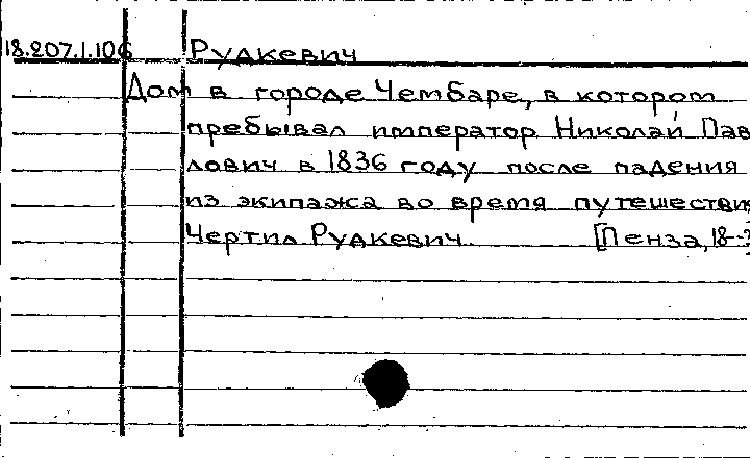 18.207.1.106 Рудкевич
Дом в городе Чембаре, в котором
пребывал император Николай Пав
лович в 1836 году после падения
из экипажа во время путешестви
Чертил Рудкевич. [Пенза, 18--?